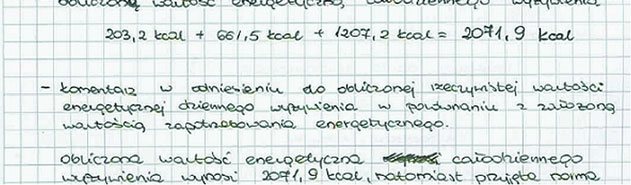 obliczoną wartość energetyczną całodziennego wyżywienia
203,2 kcal + 661,5 kcal + 1207,2 kcal = 2071,9 kcal
- komentarz w odniesieniu do obliczonej rzeczywistej wartości
energetycznej dziennego wyżywienia w porównaniu z założoną
wartością zapotrzebowania energetycznego.
obliczona wartość energetyczna całodziennego
wyżywienia wynosi 2071,9 kcal, natomiast przyjęta norma